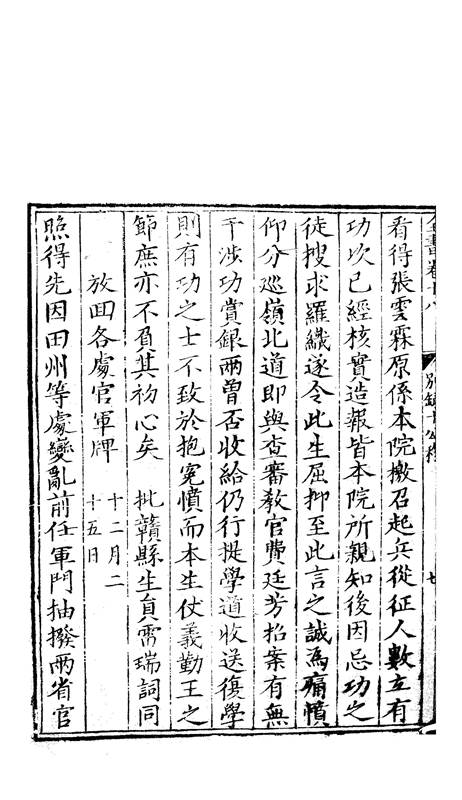 全書卷十八 別錄十 公移 七
看得張雲霖原係本院檄召起兵從征人數立有
功次已經核實造報皆本院所親知後因忌功之
徒搜求羅織遂令此生屈抑至此言之誠爲痛憤
仰分巡嶺北道即與查審教官費廷芳招案有無
干涉功賞銀兩曾否收給仍行提學道收送復學
則有功之士不致於抱冤憤而本生仗義勤王之
節庶亦不負其初心矣 批贛縣生員雷瑞詞同
放回各處官軍牌 十二月二十五日
照得先因田州等處變亂前任軍門抽撥兩省官